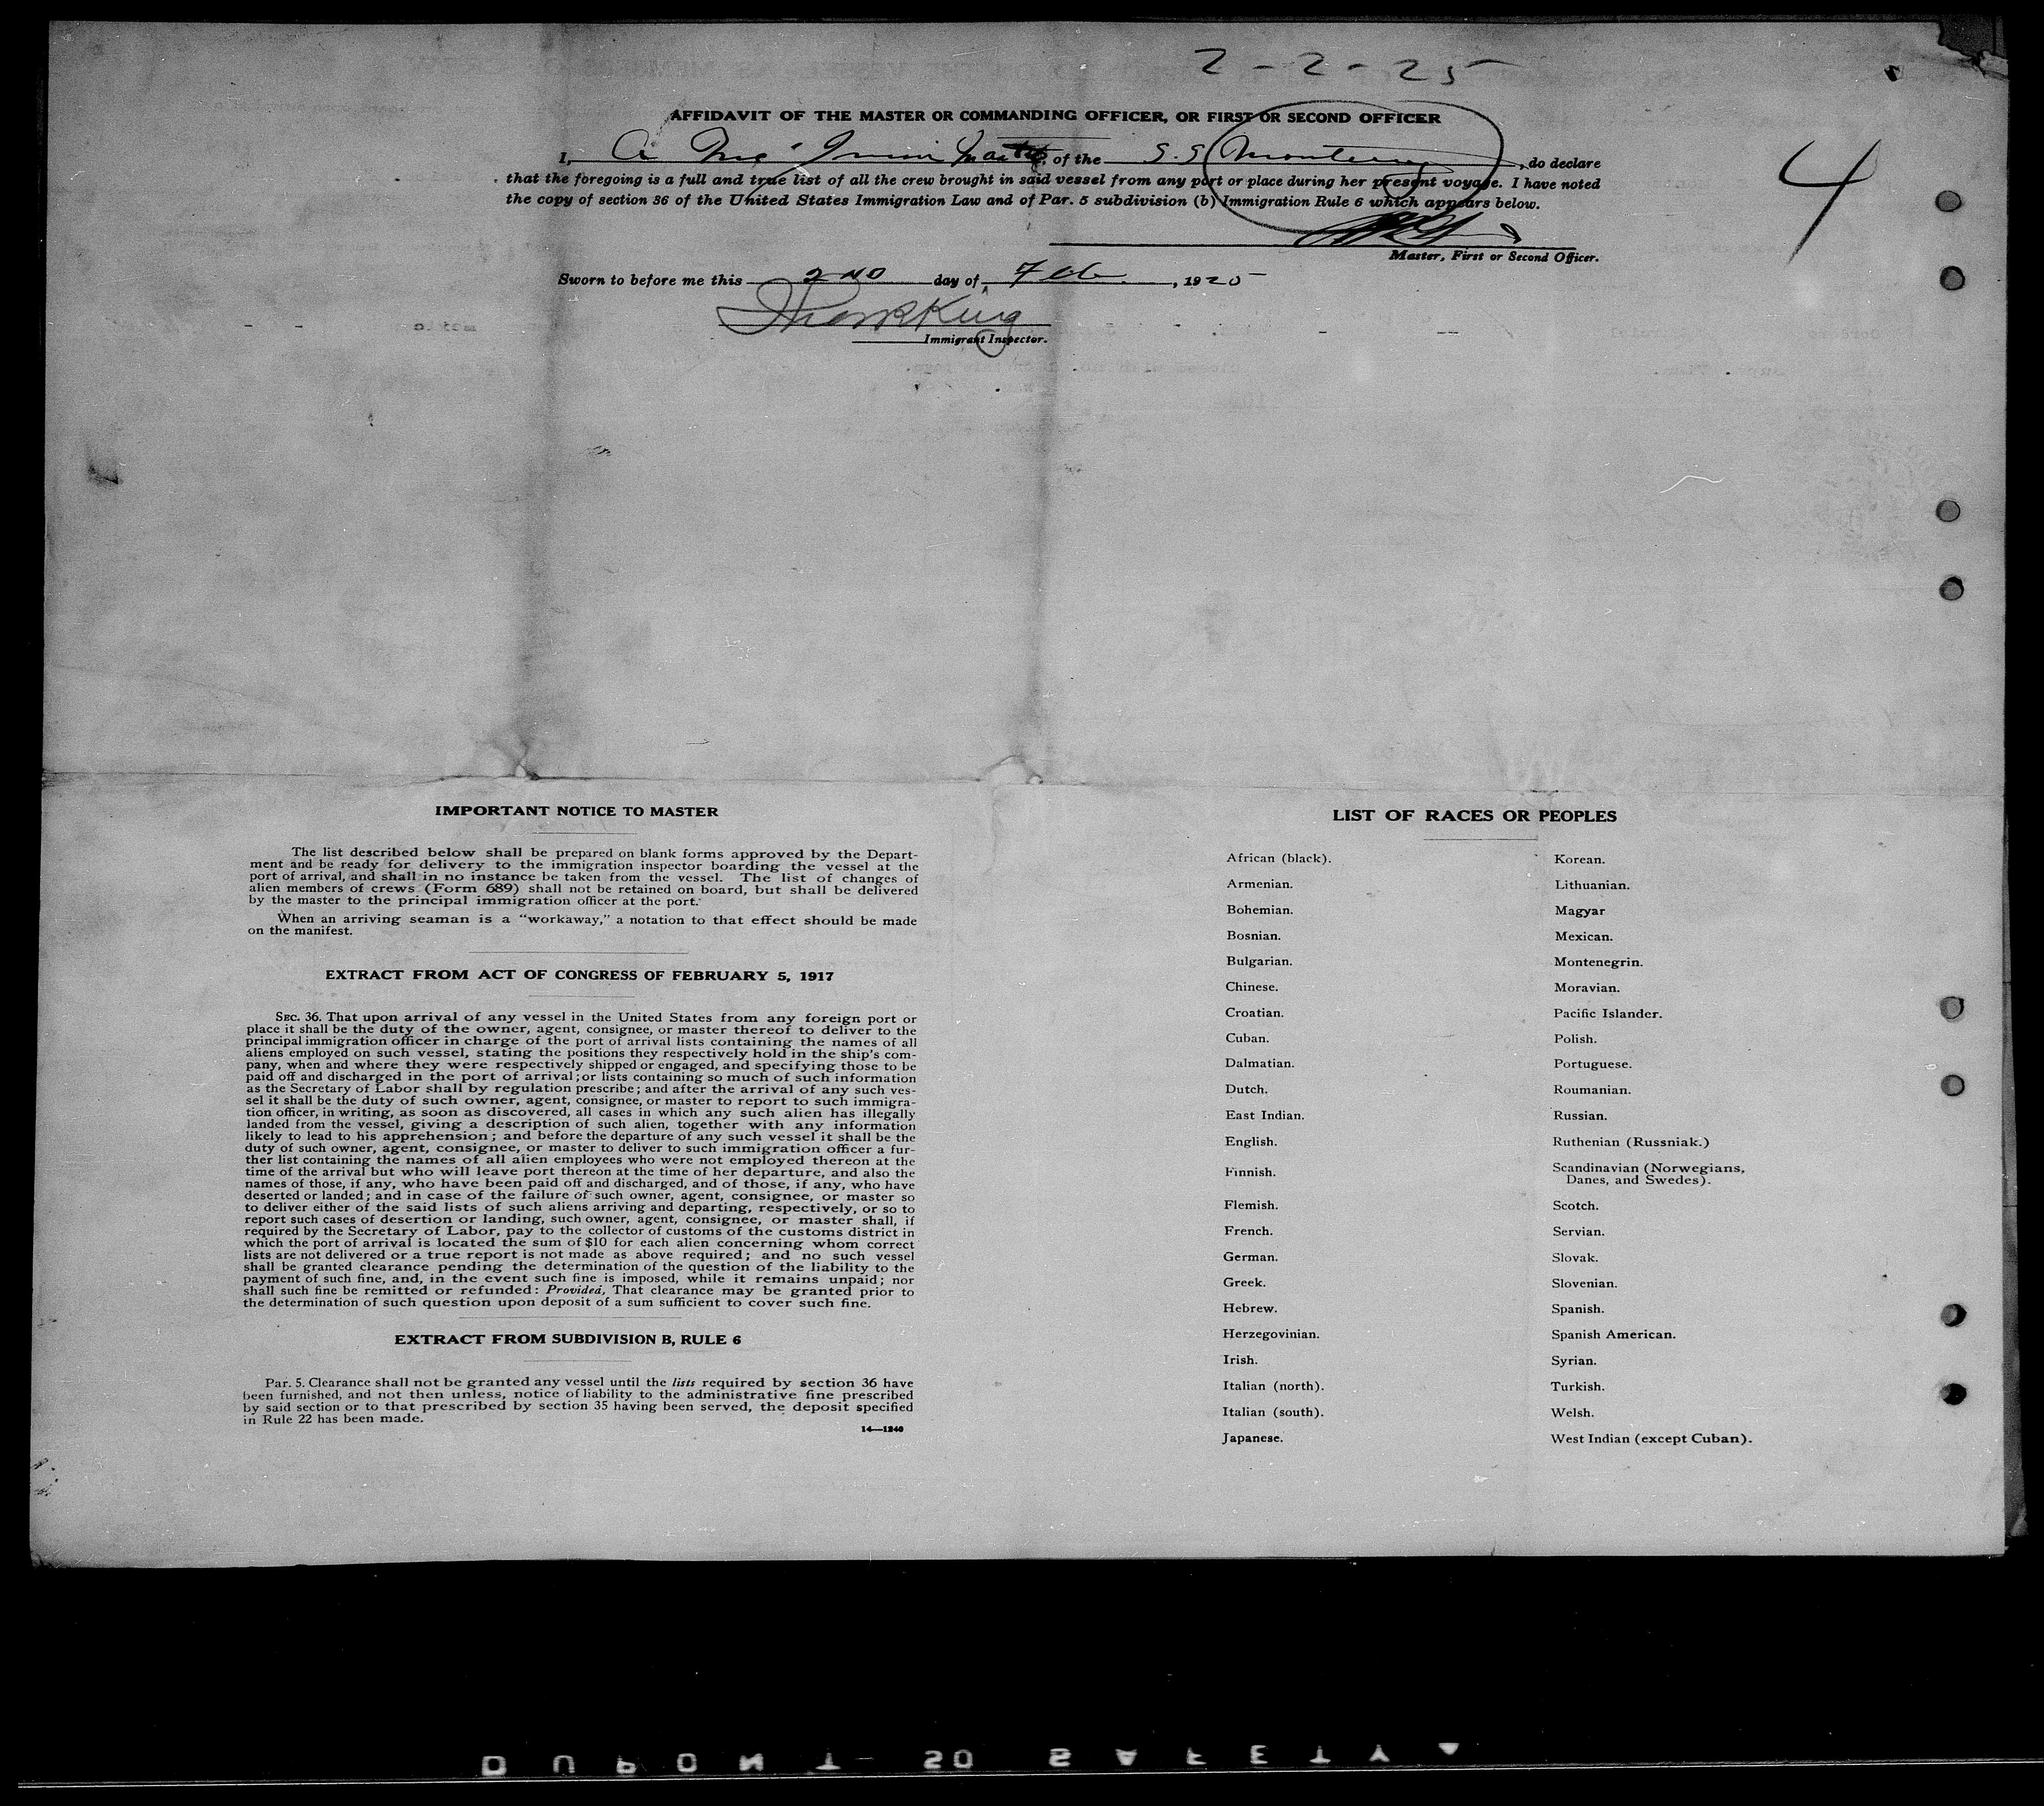 2-2-25
AFFIDAVIT OF THE MASTER OR COMMANDING OFFICER, OR FIRST OR SECOND OFFICER
I, A Mc of the S.S. Monterey, do declare
that the foregoing is a full and true list of all the crew brought in said vessel from any port or place during her present voyage. I have noted
the copy of section 36 of the United States Immigration Law and of Par. 5 subdivision (b) Immigration Rule 6 which appears below.
4
Master, First or Second Officer.
Sworn to before me this 2ND day of Feb, 1925
King
Immigrant Inspector.
IMPORTANT NOTICE TO MASTER
The list described below shall be prepared on blank forms approved by the Depart-
ment and be ready for delivery to the immigration inspector boarding the vessel at the
port of arrival, and shall in no instance be taken from the vessel. The list of changes of
alien members of crews (Form 689) shall not be retained on board, but shall be delivered
by the master to the principal immigration officer at the port.
When an arriving seaman is a "workaway," a notation to that effect should be made
on the manifest.
EXTRACT FROM ACT OF CONGRESS OF FEBRUARY 5, 1917
SEC. 36. That upon arrival of any vessel in the United States from any foreign port or
place it shall be the duty of the owner, agent, consignee, or master thereof to deliver to the
principal immigration officer in charge of the port of arrival lists containing the names of all
aliens employed on such vessel, stating the positions they respectively hold in the ship's com-
pany, when and where they were respectively shipped or engaged, and specifying those to be
paid off and discharged in the port of arrival; or lists containing so much of such information
as the Secretary of Labor shall by regulation prescribe; and after the arrival of any such ves-
sel it shall be the duty of such owner, agent, consignee, or master to report to such immigra-
tion officer, in writing, as soon as discovered, all cases in which any such alien has illegally
landed from the vessel, giving a description of such alien, together with any information
likely to lead to his apprehension; and before the departure of any such vessel it shall be the
duty of such owner, agent, consignee, or master to deliver to such immigration officer a fur-
ther list containing the names of all alien employees who were not employed thereon at the
time of the arrival but who will leave port thereon at the time of her departure, and also the
names of those, if any, who have been paid off and discharged, and of those, if any, who have
deserted or landed; and in case of the failure of such owner, agent, consignee, or master so
to deliver either of the said lists of such aliens arriving and departing, respectively, or so to
report such cases of desertion or landing, such owner, agent, consignee, or master shall, if
required by the Secretary of Labor, pay to the collector of customs of the customs district in
which the port of arrival is located the sum of $10 for each alien concerning whom correct
lists are not delivered or a true report is not made as above required; and no such vessel
shall be granted clearance pending the determination of the question of the liability to the
payment of such fine, and, in the event such fine is imposed, while it remains unpaid; nor
shall such fine be remitted or refunded: Provided, That clearance may be granted prior to
the determination of such question upon deposit of a sum sufficient to cover such fine.
EXTRACT FROM SUBDIVISION B, RULE 6
Par. 5. Clearance shall not be granted any vessel until the lists required by section 36 have
been furnished, and not then unless, notice of liability to the administrative fine prescribed
by said section or to that prescribed by section 35 having been served, the deposit specified
in Rule 22 has been made.
14—1240
LIST OF RACES OR PEOPLES
African (black).
Armenian.
Bohemian.
Bosnian.
Bulgarian.
Chinese.
Croatian.
Cuban.
Dalmatian.
Dutch.
East Indian.
English.
Finnish.
Flemish.
French.
German.
Greek.
Hebrew.
Herzegovinian.
Irish.
Italian (north).
Italian (south).
Japanese.
Korean.
Lithuanian.
Magyar
Mexican.
Montenegrin.
Moravian.
Pacific Islander.
Polish.
Portuguese.
Roumanian.
Russian.
Ruthenian (Russniak.)
Scandinavian (Norwegians,
Danes, and Swedes).
Scotch.
Servian.
Slovak.
Slovenian.
Spanish.
Spanish American.
Syrian.
Turkish.
Welsh.
West Indian (except Cuban).
DUPONT 20 SAFETY